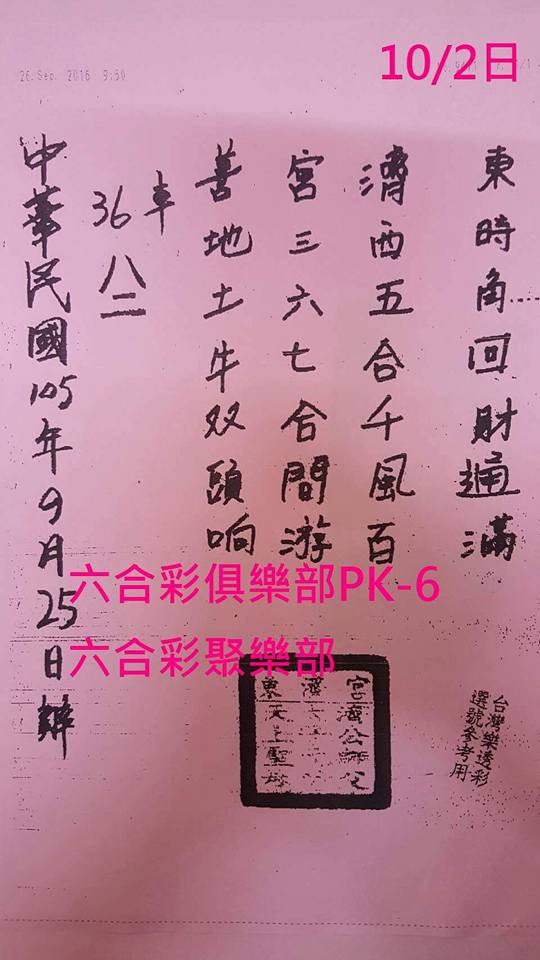 26. Sep. 2016 9:50
10/2日
東時角回財通滿
濟西五合千風百
宮三六七合問游
善地土牛双頭响
車
36 八二
中華民國105年9月25日辦
六合彩俱樂部PK-6
六合彩聚樂部
台灣樂透彩
選號參考用